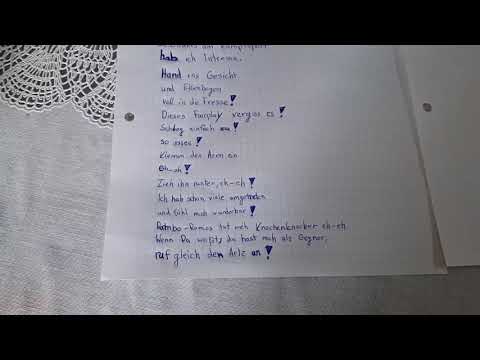 hab ich Interesse.
Hand ins Gesicht
und Ellenbogen
voll in die Fresse!
Dieses Fairplay vergiss es!
Schlag einfach zu!
so
Klemm den Arm ein
eh-eh!
Zieh ihn runter, eh-eh!
Ich hab schon viele umgetreten
und fühl mich wunderbar!
Rambo-Ramos tut meh Knochenknacker eh-eh.
Wenn Du weißt, du hast mich als Gegner,
ruf gleich den Arzt an!